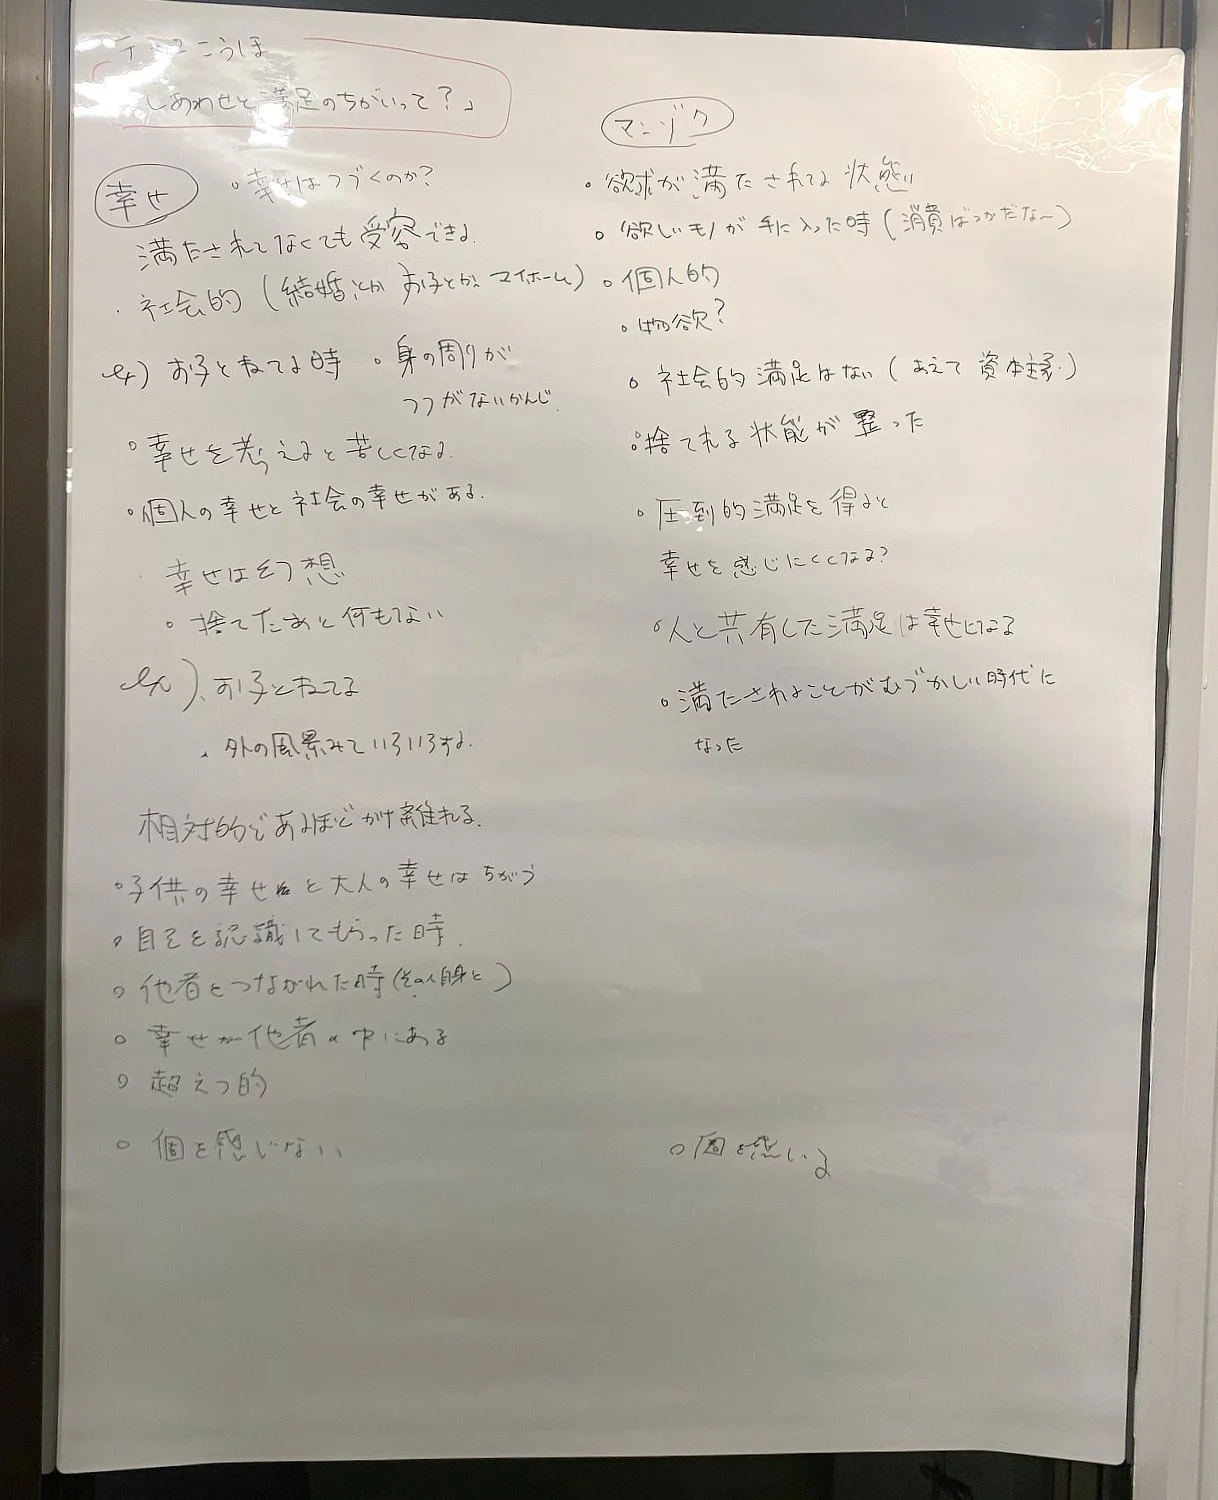 テーマこうほ
「しあわせと満足のちがいって？」
幸せ
。幸せはつづくのか？
満たされてなくても受容できる
・社会的（結婚とか お子とか、マイホーム）
ex) お子とねてる時
。身の周りが
つつがないかんじ
。幸せを考えると苦しくなる
。個人の幸せと社会の幸せがある。
・幸せは幻想
。捨てたあと何もない
ex)、お子とねてる
、外の風景みていろいろする。
相対的であるほど離れる。
。子供の幸せと大人の幸せはちがう
。自己を認識してもらった時
。他者とつながれた時（その人自身と）
。幸せが他者の中にある
。超えつ的
。個を感じない
マンゾク
・欲求が満たされてる状態
。欲しいモノが手に入った時（消費ばっかだな〜）
。個人的
。物欲？
。社会的満足はない（あえて 資本主義）
。捨てれる状態が整った
。圧倒的満足を得ると
幸せを感じにくくなる？
。人と共有した満足は幸せになる
。満たされることがむづかしい時代に
なった
。個を感じる